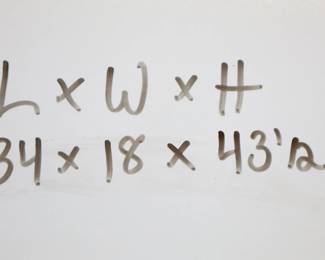 L x W x H
34 x 18 x 43'12